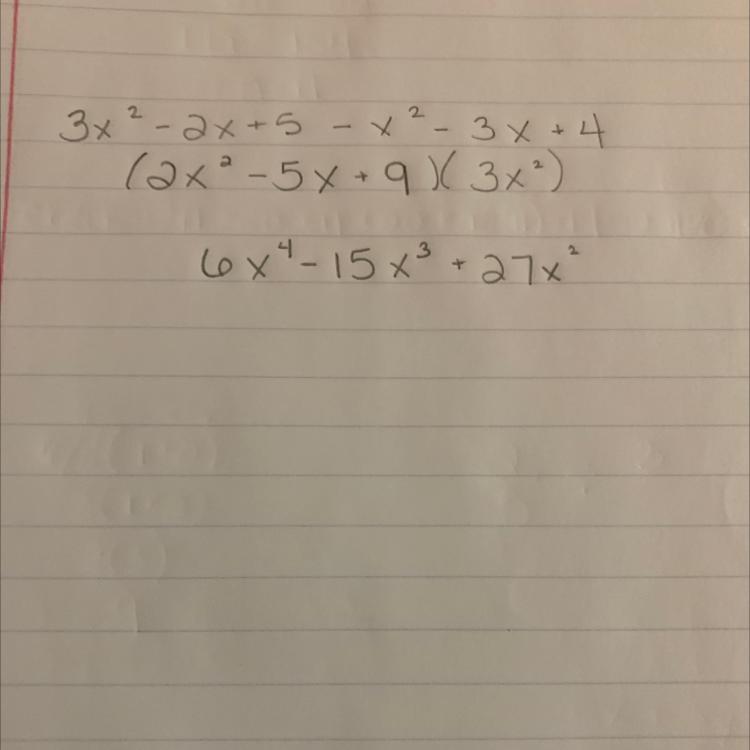 3x² - 2x + 5 - x² - 3x + 4
(2x² - 5x + 9)(3x²)
6x⁴ - 15x³ + 27x²